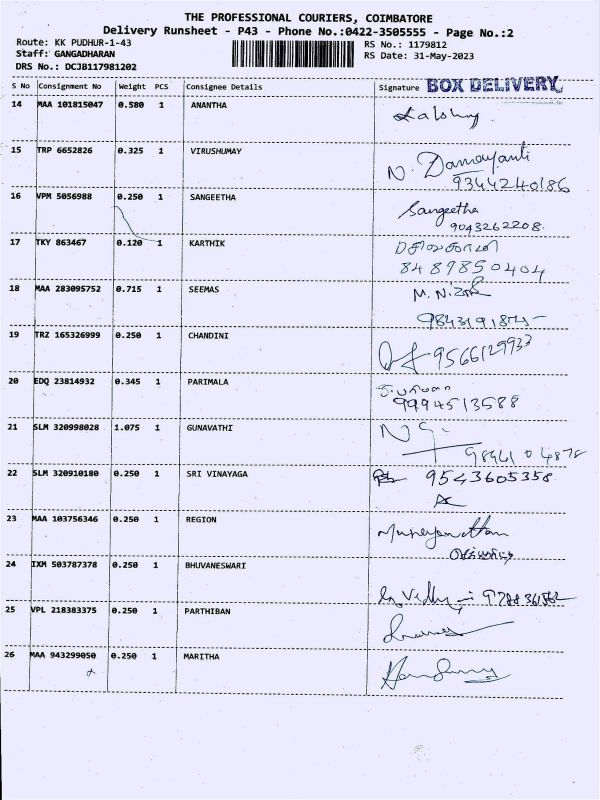 THE PROFESSIONAL COURIERS, COIMBATORE
Delivery Runsheet - P43 - Phone No.:0422-3505555 - Page No.:2
Route: KK PUDHUR-1-43 RS No.: 1179812
Staff: GANGADHARAN RS Date: 31-May-2023
DRS No.: DCJB117981202
S No Consignment No Weight PCS Consignee Details Signature BOX DELIVERY
14 MAA 101815047 0.580 1 ANANTHA
15 TRP 6652826 0.325 1 VIRUSHUMAY N. Damayanti
9344240186
16 VPM 5056988 0.250 1 SANGEETHA Sangeetha
9043262208.
17 TKY 863467 0.120 1 KARTHIK
8489850404
18 MAA 283095752 0.715 1 SEEMAS M. N.
19 TRZ 165326999 0.250 1 CHANDINI 9566129933
20 EDQ 23814932 0.345 1 PARIMALA
9994513588
21 SLM 320998028 1.075 1 GUNAVATHI
22 SLM 320910180 0.250 1 SRI VINAYAGA 9543605358
23 MAA 103756346 0.250 1 REGION
24 IXM 503787378 0.250 1 BHUVANESWARI
25 VPL 218383375 0.250 1 PARTHIBAN
26 MAA 943299050 0.250 1 MARITHA